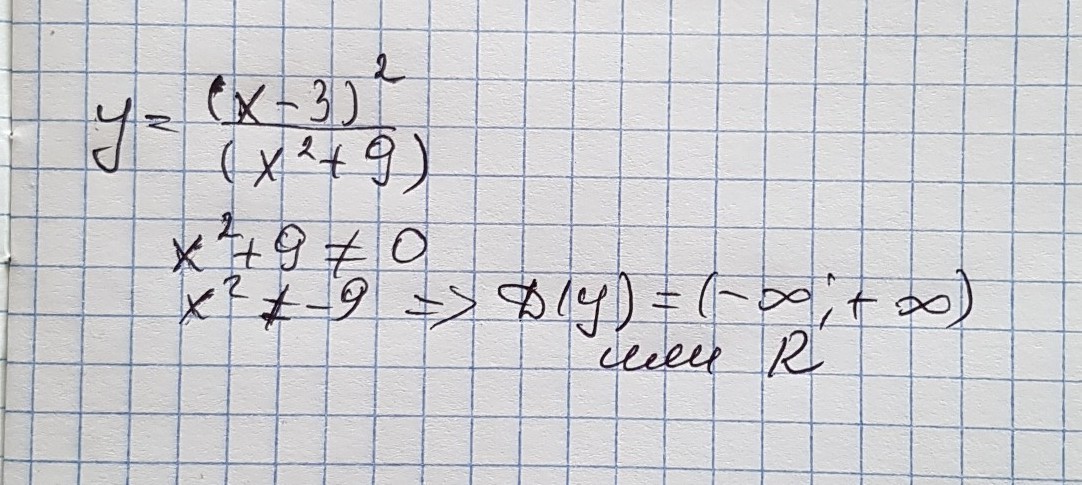 y = (x-3)²
(x²+9)
x²+9 ≠ 0
x² ≠ -9 => D(y) = (-∞; +∞)
или R